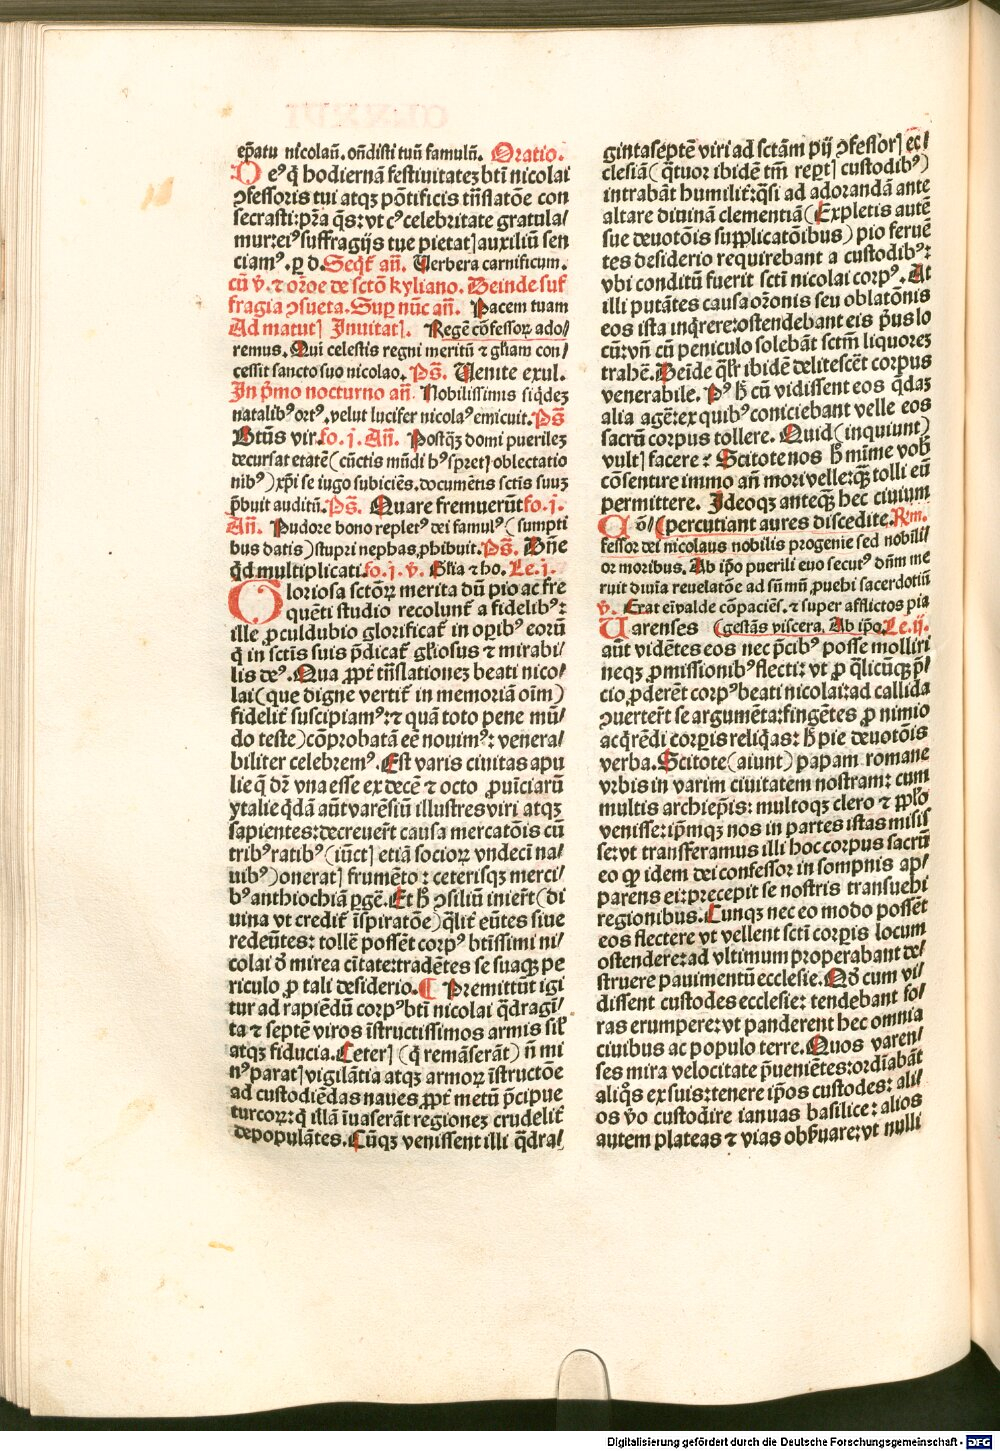 ep̄atu nicolaū. on̄disti tuū famulū. Oratio.
Deꝰ q̇ hodiernā festiuitatez bt̄i nicolai
ↄfessoris tui atqꝫ pōtificis trāslatōe con
secrasti: pr̄a q̄s: vt cꝰ celebritate gratula/
mur: eiꝰ suffragijs tue pietat} auxiliū sen
ciamꝰ. ꝑ d. Seqr̄ an̄. Uerbera carnificum.
cū v̄. ⁊ oꝛōe de sctō kyliano. Deinde suf
fragia ↄsueta. Suꝑ nūc an̄. Pacem tuam
Ad matut} Inuitat}. Regē cōfessoꝝ ado/
remus. Qui celestis regni meritū ⁊ gl̄iam con/
cessit sancto suo nicolao. Ps̄. Uenite exul.
In p̄mo nocturno an̄. Nobilissimis siq̇dez
natalibꝰ ortꝰ. velut lucifer nicolaꝰ emicuit. Ps̄
Btūs vir. fo. j. An̄. Postq̄ꝫ domi puerilez
decursat etatē (cūctis mūdi hꝰ spret} oblectatio
nibꝰ) xp̄i se iugo subiciēs. documētis sctīs suuꝫ
p̄buit auditū. Ps̄. Quare fremuerūt fo. j.
An̄. Pudore bono repletꝰ dei famulꝰ (sumpti
bus datis) stupri nephas ꝓhibuit. Ps̄. Dn̄e
qd̄ multiplicati. fo. j. v̄. Gl̄ia ⁊ ho. Le. j.
Gloriosa sctōꝝ merita dū pio ac fre
quēti studio recolunt̄ a fidelibꝰ:
ille ꝓculdubio glorificat̄ in oꝑibꝰ eorū
q̇ in sctīs suis p̄dicat̄ gl̄iosus ⁊ mirabi/
lis deꝰ. Qua ꝓpt̄ trāslationez beati nico/
lai (que digne vertit̄ in memoriā oīm)
fidelit̄ suscipiamꝰ: ⁊ quā toto pene mū/
do teste) cōprobatā eē nouimꝰ: venera/
biliter celebremꝰ. Est varis ciuitas apu
lie q̄ dr̄ vna esse ex decē ⁊ octo ꝓuīciarū
ytalie q̄dā aūt varēsiū illustres viri atqꝫ
sapientes: decreuer̄t causa mercatōis cū
tribꝰ ratibꝰ (iūct} etiā socioꝝ vndecī na/
uibꝰ) onerat} frumēto: ceterisqꝫ merci/
bꝰ anthiochiā ꝑgē. Et h̄ ↄsiliū inier̄t (di
uina vt credit̄ īspiratōe) q̄lit̄ eūtes siue
redeūtes: tollē possēt corpꝰ btīssimi ni/
colai d̄ mirea cītate: tradētes se suaqꝫ pe
riculo ꝓ tali desiderio. ¶ Premittūt igi
tur ad rapiēdū corpꝰ bt̄i nicolai q̄dragī/
ta ⁊ septē viros īstructissimos armis sil̄
atqꝫ fiducia. Ceter} (q̇ remāserāt) n̄ mi
nꝰ parat} vigilātia atqꝫ armoꝝ īstructōe
ad custodiēdas naues ꝓpt̄ metū p̄cipue
turcoꝝ: q̇ illā īuaserāt regionez crudelit̄
depopulātes. Cūqꝫ venissent illi q̄dra/
gintaseptē viri ad sctām pij ↄfessor} ec/
clesiā (q̄tuor ibidē tm̄ repert} custodibꝰ)
intrabāt humilit̄: q̄si ad adorandā ante
altare diuinā clementiā (Expletis autē
sue deuotōis supplicatōibus) pio feruē
tes desiderio requirebant a custodibꝰ:
vbi conditū fuerit sctī nicolai corpꝰ. At
illi putātes causa oꝛōnis seu oblatōnis
eos ista inq̇rere: ostendebant eis p̄us lo
cū: vn̄ cū peniculo solebāt sctm̄ liquorez
trahē. Deīde q̄lr̄ ibidē delitescēt corpus
venerabile. Pꝰ h̄ cū vidissent eos q̄daꝫ
alia agē: ex quibꝰ coniciebant velle eos
sacrū corpus tollere. Quid (inquiunt)
vult} facere? Scitote nos h̄ mīme vob̄
cōsentire immo an̄ mori velle: q̄ꝫ tolli eū
permittere. Ideoqꝫ anteq̄ꝫ hec ciuium
Cō/ (percutiant aures discedite. Rm̄.
fessor dei nicolaus nobilis progenie sed nobili/
or moribus. Ab ip̄o puerili euo secutꝰ dn̄m me
ruit diuīa reuelatōe ad sūmū ꝓuehi sacerdotiū
v̄. Erat em̄ valde cōpaciēs. ⁊ super afflictos pia
Uarenses (gestās viscera. Ab ip̄o. Le. ij.
aūt vidētes eos nec p̄cibꝰ posse molliri
neqꝫ ꝓmissionibꝰ flecti: vt ꝓ q̄licūqꝫ p̄/
cio ꝓderēt corpꝰ beati nicolai: ad callida
ↄuerter̄t se argumēta: fingētes ꝓ nimio
acq̇rēdi corꝑis reliq̇as: h̄ pie deuotōis
verba. Scitote (aiunt) papam romane
vrbis in varim ciuitatem nostram: cum
multis archiep̄is: multoqꝫ clero ⁊ ppl̄o
venisse: ip̄mqꝫ nos in partes istas misis
se: vt transferamus illi hoc corpus sacrū
eo ꝙ idem dei confessor in sompnis ap/
parens ei: precepit se nostris transuehi
regionibus. Cunqꝫ nec eo modo possēt
eos flectere vt vellent sctī corꝑis locum
ostendere: ad vltimum properabant de/
struere pauimentū ecclesie. Qd̄ cum vi/
dissent custodes ecclesie: tendebant fo/
ras erumpere: vt panderent hec omnia
ciuibus ac populo terre. Quos varen/
ses mira velocitate p̄uenietes: ordīabāt
aliq̇s ex suis: tenere ip̄os custodes: ali/
os v̄o custodire ianuas basilice: alios
autem plateas ⁊ vias obf̄uare: vt nulli
Digitalisierung gefördert durch die Deutsche Forschungsgemeinschaft - DFG